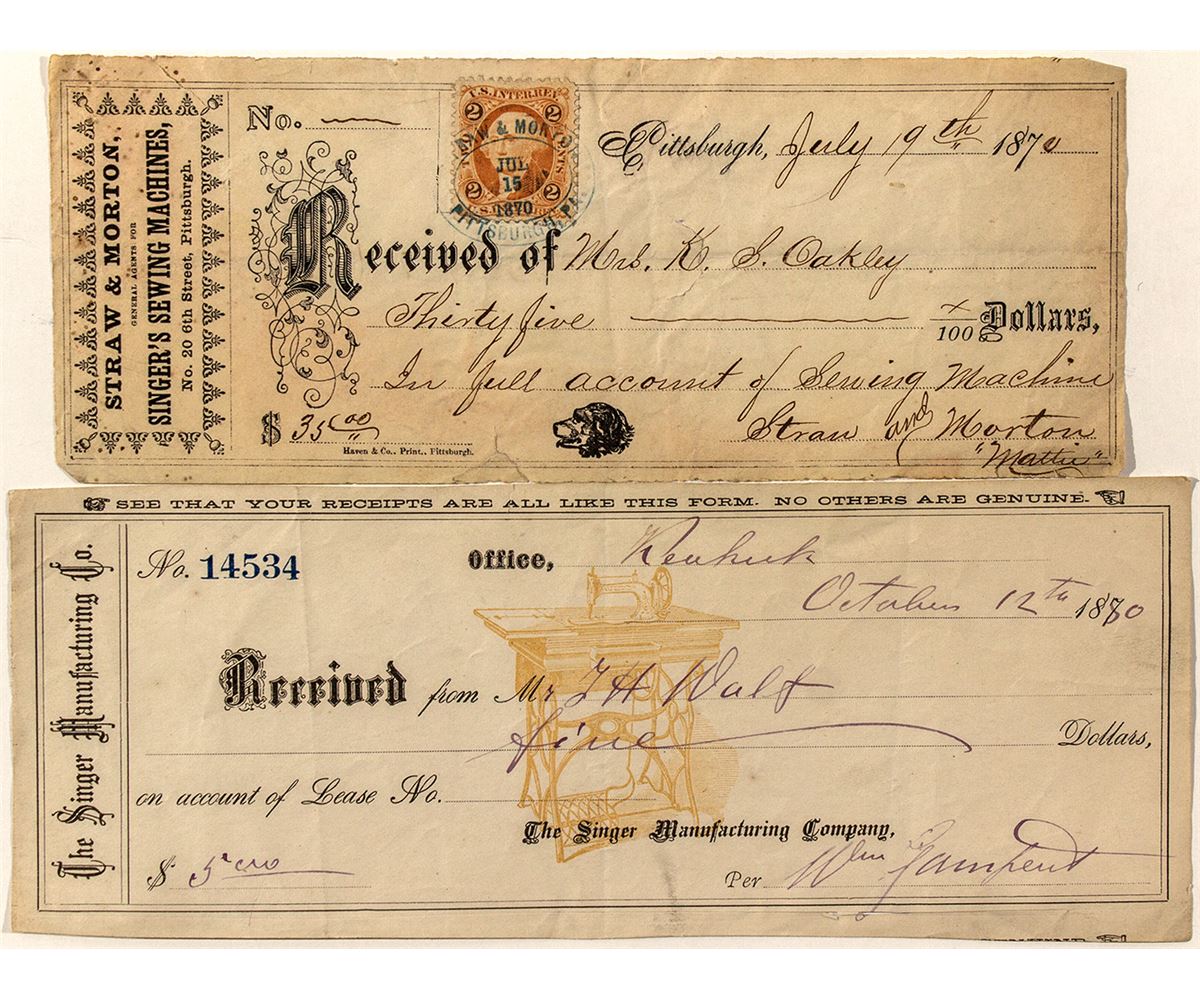 STRAW & MORTON,
GENERAL AGENTS FOR
SINGER'S SEWING MACHINES,
No. 20 6th Street, Pittsburgh.
No.
U.S. INTER. REV.
2 2
STRAW & MORTON
JUL
15
1870
PITTSBURGH, PA.
2 2
Pittsburgh, July 19th 1870
Received of Mrs. K. S. Oakley
Thirty five x/100 Dollars,
In full account of Sewing Machine
$ 35.00 Straw and Morton
"Mattie"
Haven & Co., Print., Pittsburgh.
SEE THAT YOUR RECEIPTS ARE ALL LIKE THIS FORM. NO OTHERS ARE GENUINE.
The Singer Manufacturing Co.
No. 14534 Office, Keokuk
October 12th 1880
Received from Mr J H Walt
five Dollars,
on account of Lease No.
The Singer Manufacturing Company,
$ 5 00 Per Wm